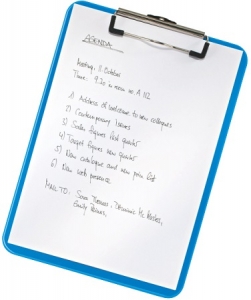 AGENDA
Meeting: 11 October
Time: 9.30 in room no A 112
1) Address of welcome to new collegues
2) Contemporary issues
3) Sales figures last quarter
4) Target figures new quarter
5) New catalogue and new price list
6) New web presence
MAIL TO: Sara Thomas, Dominic
Emily